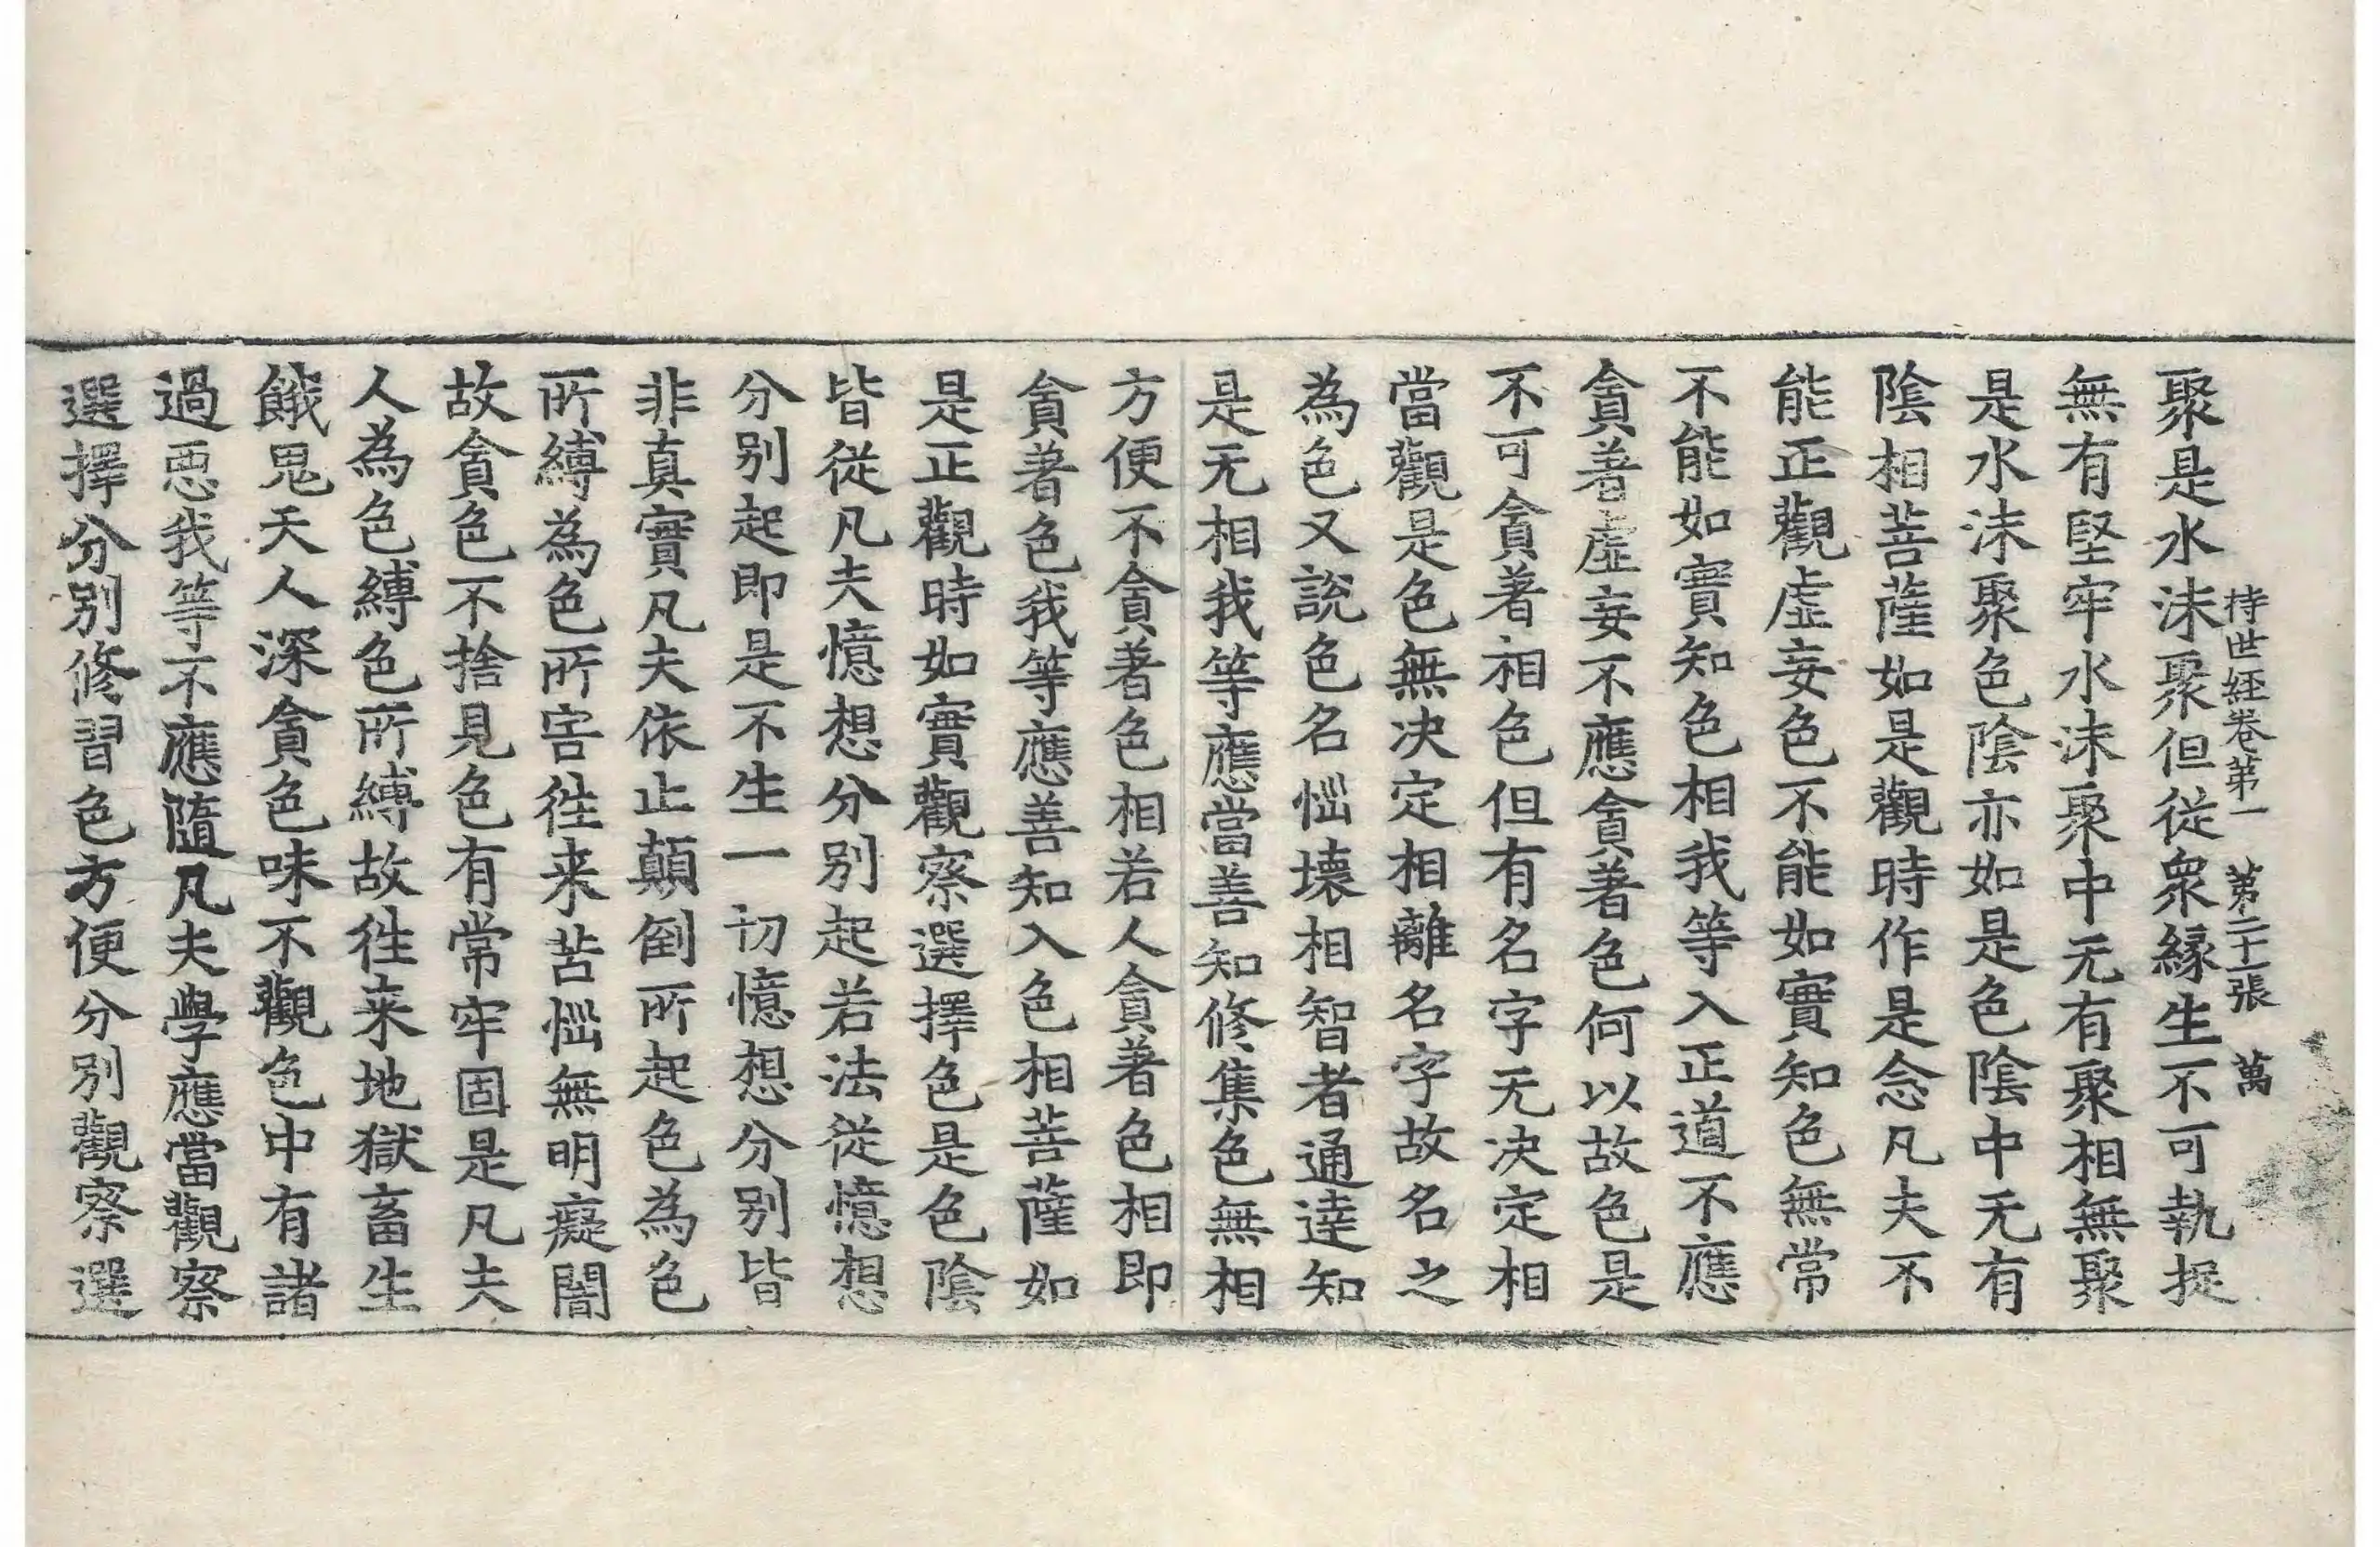 持世経卷第一 第二十一張 萬
聚是水沫聚但從衆緣生不可執捉
無有堅牢水沫聚中无有聚相無聚
是水沫聚色陰亦如是色陰中无有
陰相菩薩如是觀時作是念凡夫不
能正觀虛妄色不能如實知色無常
不能如實知色相我等入正道不應
貪著虛妄不應貪著色何以故色是
不可貪著相色但有名字无決定相
當觀是色無決定相離名字故名之
為色又說色名惱壞相智者通達知
是无相我等應當善知修集色無相
方便不貪著色相若人貪著色相即
貪著色我等應善知入色相菩薩如
是正觀時如實觀察選擇色是色陰
皆從凡夫憶想分別起若法從憶想
分別起即是不生一切憶想分別皆
非真實凡夫依止顛倒所起色為色
所縛為色所害徃来苦惱無明癡闇
故貪色不捨見色有常牢固是凡夫
人為色縛色所縛故徃来地獄畜生
餓鬼天人深貪色味不觀色中有諸
過惡我等不應隨凡夫學應當觀察
選擇分別修習色方便分別觀察選